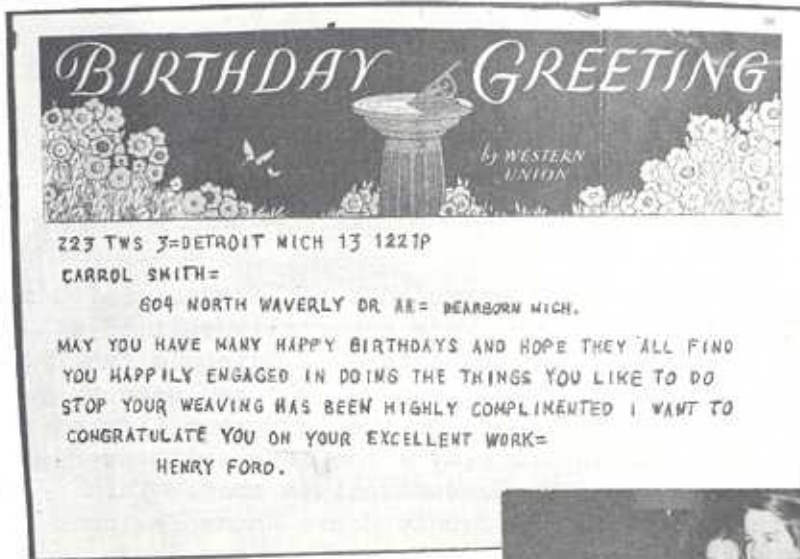 BIRTHDAY GREETING
by WESTERN
UNION
223 TWS 3=DETROIT MICH 13 1221P
CARROL SMITH=
604 NORTH WAVERLY DR AR= DEARBORN MICH.
MAY YOU HAVE MANY HAPPY BIRTHDAYS AND HOPE THEY ALL FIND
YOU HAPPILY ENGAGED IN DOING THE THINGS YOU LIKE TO DO
STOP YOUR WEAVING HAS BEEN HIGHLY COMPLIMENTED I WANT TO
CONGRATULATE YOU ON YOUR EXCELLENT WORK=
HENRY FORD.